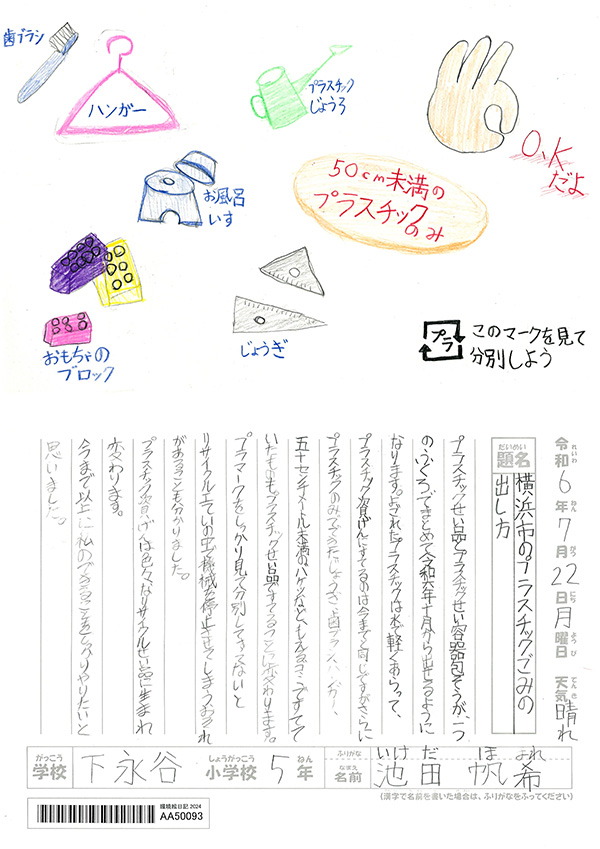 歯ブラシ
ハンガー
プラスチック
じょうろ
O.K
だよ
お風呂
いす
50cm未満の
プラスチック
のみ
おもちゃの
ブロック
じょうぎ
プラ
このマークを見て
分別しよう
令和6年7月22日月曜日 天気晴れ
れいわ ねん がつ にち ようび てんき
だいめい
題名
横浜市のプラスチックごみの
出し方
プラスチックせい品とプラスチックせい容器包そうが、一つ
のふくろでまとめて令和六年十月から出せるように
なります。よごれたプラスチックは水で軽くあらって、
プラスチック資げんにすてるのは今までと同じですがさらに
プラスチックのみでできたじょうぎ、歯ブラシ、ハンガー、
五十センチメートル未満のバケツなど、もえるゴミですてて
いたものもプラスチックせい品ですてることに変わります。
プラマークをしっかり見て分別してすてないと
リサイクル工ていの中で機械を停止させてしまうおそれ
があることも分かりました。
プラスチック資げんは色々なリサイクルせい品に生まれ
変わります。
今まで以上に私のできることをしっかりやりたいと
思いました。
がっこう しょうがっこう ねん
学校 下永谷 小学校 5年
ふりがな いけ だ ほ まれ
なまえ
名前 池田 帆希
(漢字で名前を書いた場合は、ふりがなをふってください)
環境絵日記 2024
AA50093